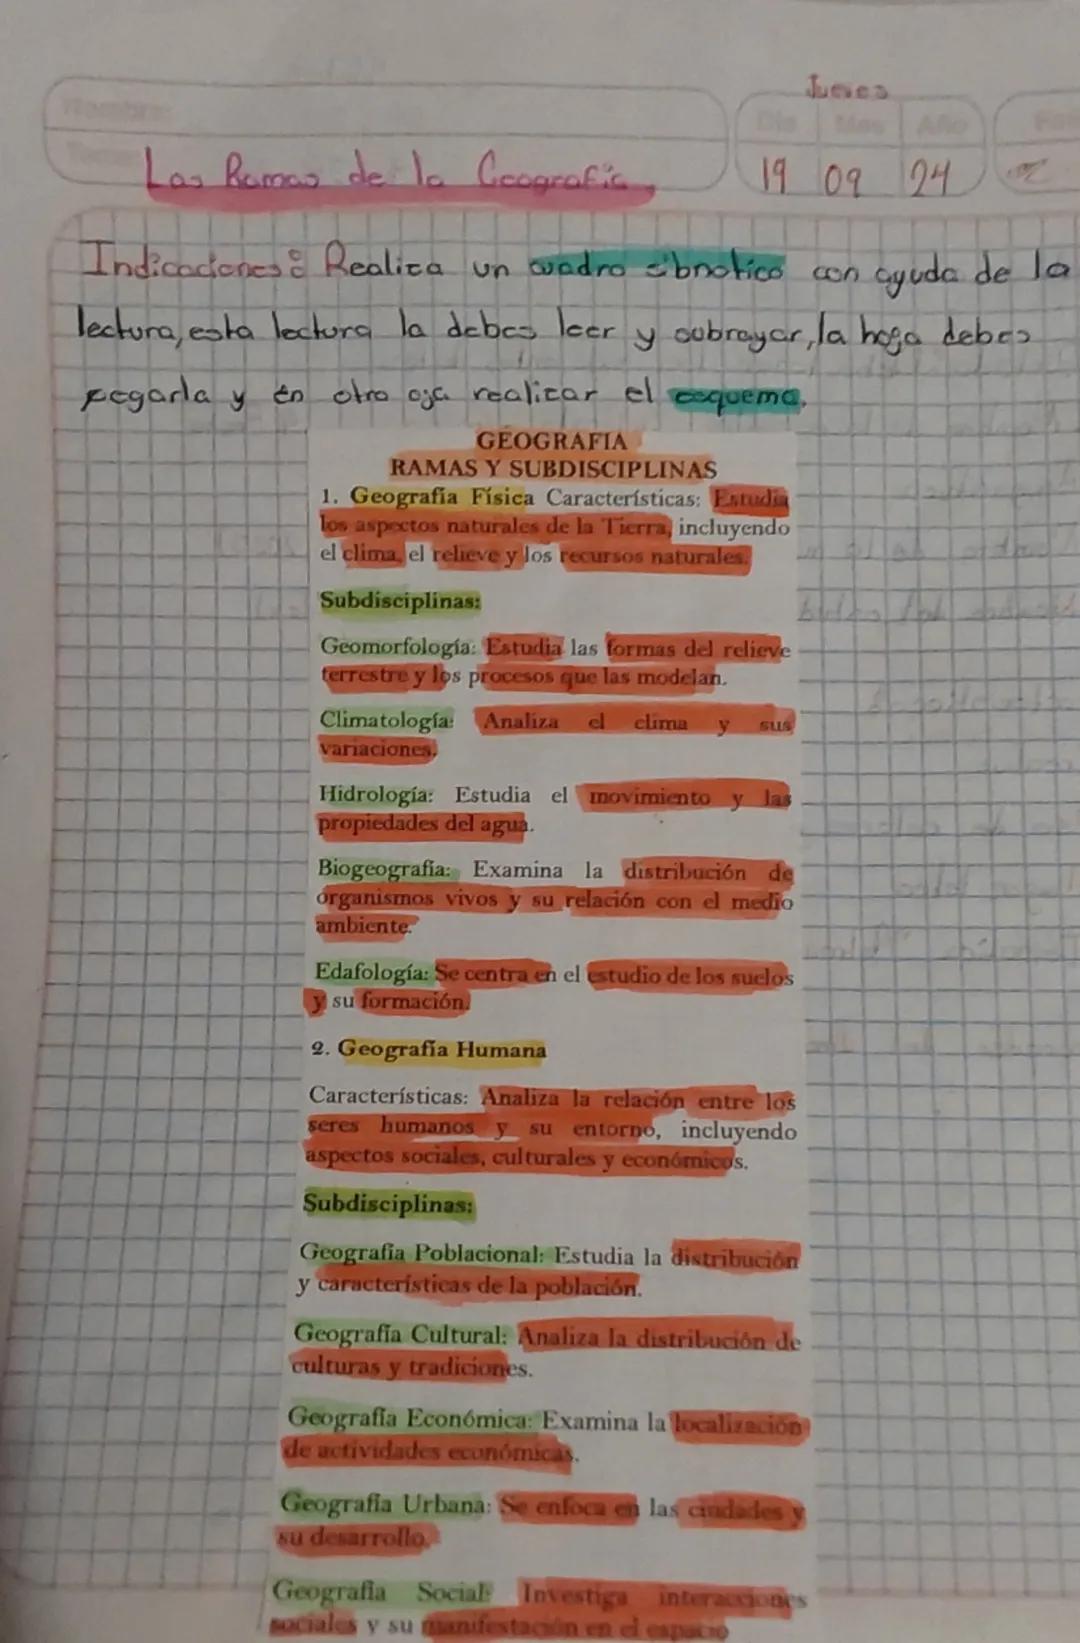 Jueves
Nombre:
Día Mes Año
Tema: Las Ramas de la Geografia
19 09 24
Indicaciones: Realiza un cuadro sibnotico con ayuda de la
lectura, esta lectura la debes leer y subrayar, la hoja debes
pegarla y en otra oja realizar el esquema.
GEOGRAFIA
RAMAS Y SUBDISCIPLINAS
1. Geografía Física Características: Estudia
los aspectos naturales de la Tierra, incluyendo
el clima, el relieve y los recursos naturales.
Subdisciplinas:
Geomorfología: Estudia las formas del relieve
terrestre y los procesos que las modelan.
Climatología: Analiza el clima y sus
variaciones.
Hidrología: Estudia el movimiento y las
propiedades del agua.
Biogeografía: Examina la distribución de
organismos vivos y su relación con el medio
ambiente.
Edafología: Se centra en el estudio de los suelos
y su formación.
2. Geografía Humana
Características: Analiza la relación entre los
seres humanos y su entorno, incluyendo
aspectos sociales, culturales y económicos.
Subdisciplinas:
Geografía Poblacional: Estudia la distribución
y características de la población.
Geografía Cultural: Analiza la distribución de
culturas y tradiciones.
Geografía Económica: Examina la localización
de actividades económicas.
Geografía Urbana: Se enfoca en las ciudades y
su desarrollo.
Geografía Social: Investiga interacciones
sociales y su manifestación en el espacio